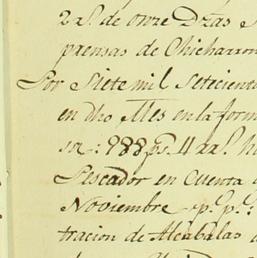 2 rs. de onze Dzas
prensas de Chicharron
Por Siete mil Seteciento
en dho Mes en la form
sa: 988 ps. 11 rs. h
Pescador en cuenta
Noviembre p. p.
tracion de Alcabalas